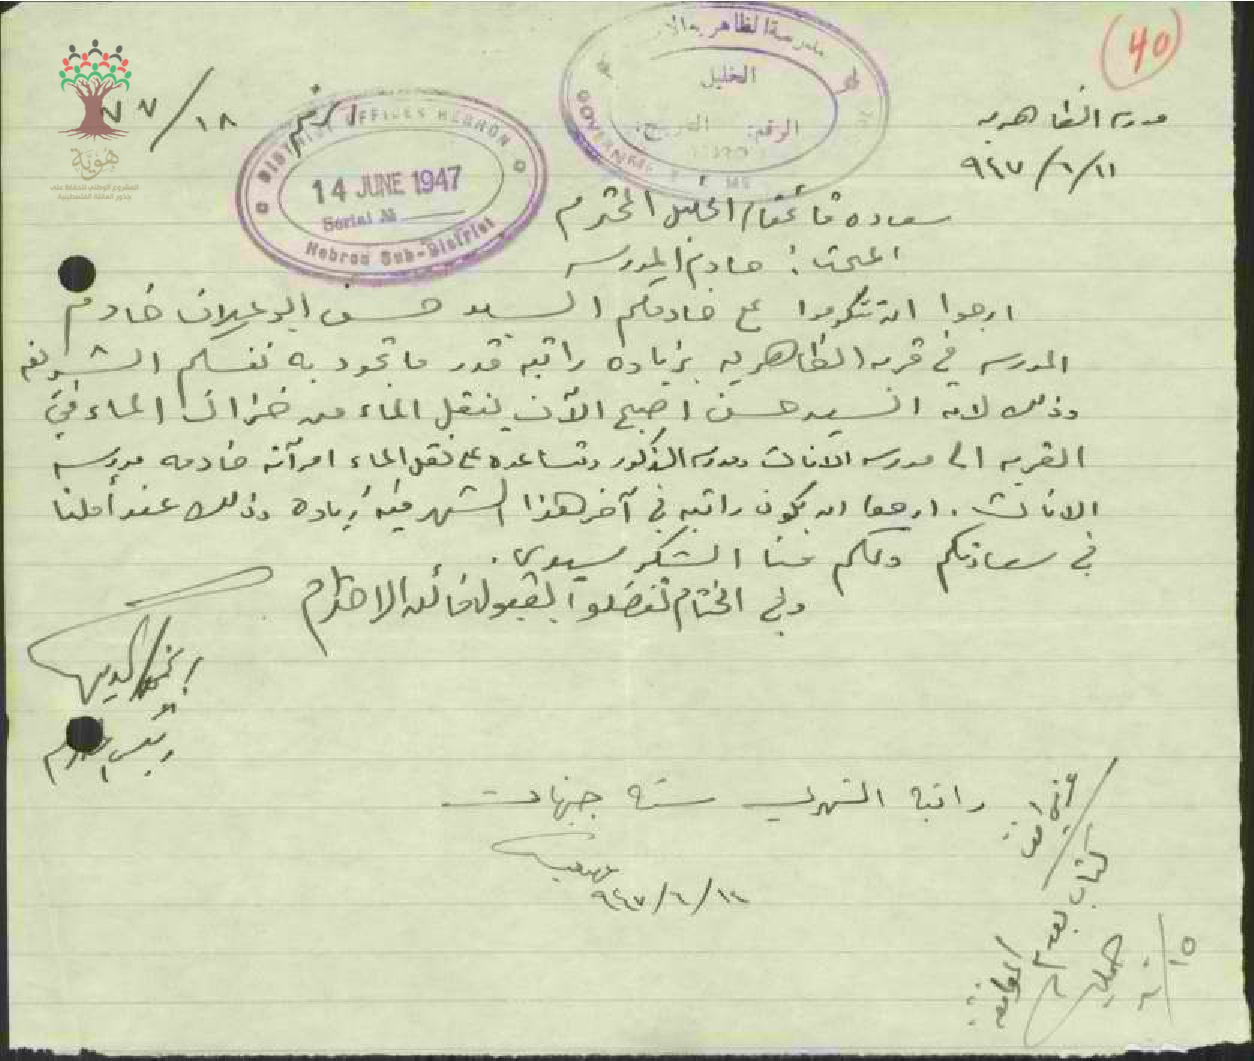 40
مدرسة الظاهرية
٩٤٧/٦/١١
الرقم ٧٧/١٨
مدرسة الظاهرية
الخليل
الرقم: التاريخ:
DISTRICT OFFICES HEBRON
14 JUNE 1947
Serial No
Hebron Sub-District
هوية
المشروع الوطني للحفاظ على
جذور العائلة الفلسطينية
سعادة قائمقام الخليل المحترم
المبحث: خادم المدرسة
ارجوا ان تتكرموا على خادمكم السيد حسن ابو علان خادم
المدرسة في قرية الظاهرية بزيادة راتبه قدر ما تجود به نفسكم الشريفة
وذلك لانه السيد حسن اصبح الآن ينقل الماء من خزان الماء في
القرية الى مدرسة الاناث ومدرسة الذكور وتساعده على نقل الماء امرأته خادمة مدرسة
الاناث. ارجوا ان يكون راتبه في آخر هذا الشهر فيه زيادة وذلك عند أملنا
في سعادتكم ولكم منا الشكر سيدي.
وفي الختام تفضلوا بقبول فائق الاحترام
راتبه الشهري ستة جنيهات
٩٤٧/٦/١٤
كتاب بعدم
الموافقة
١٥